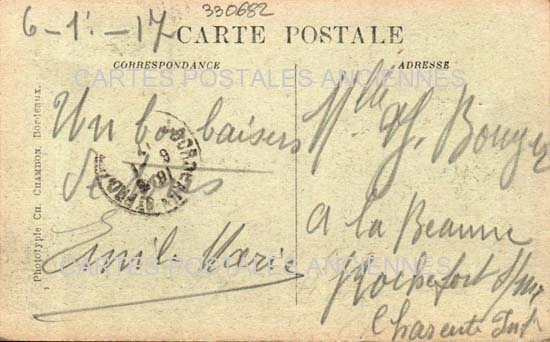 330682
6-1-17
CARTE POSTALE
CORRESPONDANCE
ADRESSE
CARTES POSTALES ANCIENNES
Phototypie Ch. CHAMBON, Bordeaux.
Un bon baisers
Emile Marie
BORDEAUX
Mlle Bouyer
A la Beaune
Rochefort s/mer
Charente Inf
CARTES POSTALES ANCIENNES